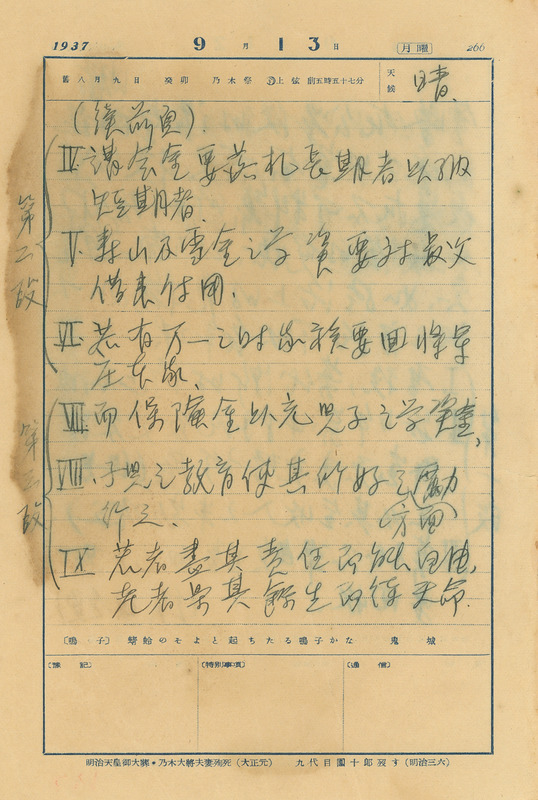 1937 9月13日 月曜 266
舊八月九日 癸卯 乃木祭 上弦 前五時五十七分 天候 晴、
(續前頁).
第二段
IV. 講会金要落札長期者以故
短期者、
V. 壽山及雪金之学資要対
借来付用.
VI. 若有万一之时家族要回
在家、
第三段
VII. 而保險金以充児子之学資金、
VIII. 子児之教育使其所好之方面勵
行之、
IX 若者盡其責任而能自由,
老者樂其餘生而待天命.
〔鳴子〕 蜻蛉のそよと起ちたる鳴子かな 鬼城
〔豫記〕 〔特別事項〕 〔通信〕
明治天皇御大葬・乃木大將夫妻殉死(大正元) 九代目團十郎歿す(明治三六)